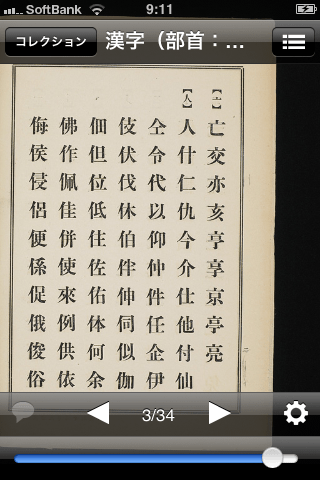 SoftBank 9:11
コレクション 漢字（部首：...
【亠】
亡交亦亥亨享京亭亮
【人】
人什仁仇今介仕他付仙
仝令代以仰仲件任企伊
伎伏伐休伯伴伸伺似伽
佃但位低住佐佑体何余
佛作佩佳併使來例供依
侮侯侵侶便係促俄俊俗
3/34